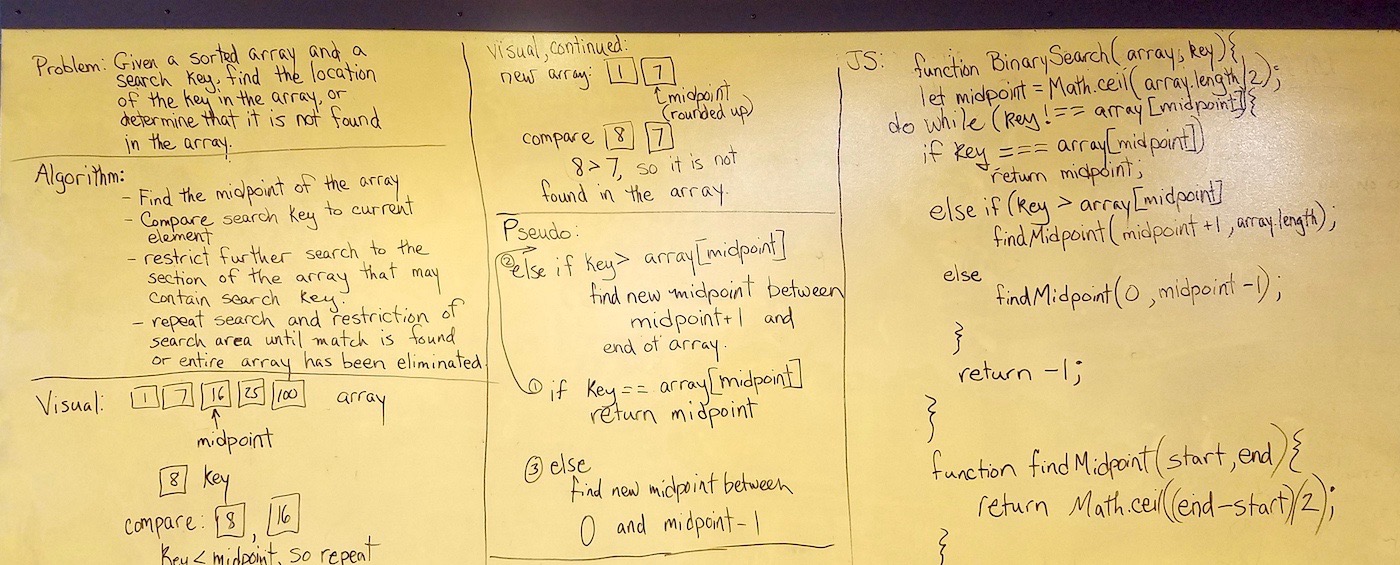 Problem: Given a sorted array and a
search key, find the location
of the key in the array, or
determine that it is not found
in the array.
Algorithm:
- Find the midpoint of the array
- Compare search key to current
element
- restrict further search to the
section of the array that may
contain search key.
- repeat search and restriction of
search area until match is found
or entire array has been eliminated.
Visual: 1 7 16 25 100 array
midpoint
8 key
compare: 8, 16
key < midpoint, so repeat
Visual, continued:
new array: 1 7
midpoint
(rounded up)
compare 8 7
8 > 7, so it is not
found in the array.
Pseudo:
② else if key > array[midpoint]
find new midpoint between
midpoint+1 and
end of array.
① if key == array[midpoint]
return midpoint
③ else
find new midpoint between
0 and midpoint-1
JS: function BinarySearch(array, key){
let midpoint = Math.ceil(array.length/2);
do while (key !== array[midpoint]){
if key === array[midpoint])
return midpoint;
else if (key > array[midpoint]
findMidpoint(midpoint +1, array.length);
else
findMidpoint(0, midpoint -1);
}
return -1;
}
function findMidpoint(start, end){
return Math.ceil((end-start)/2);
}